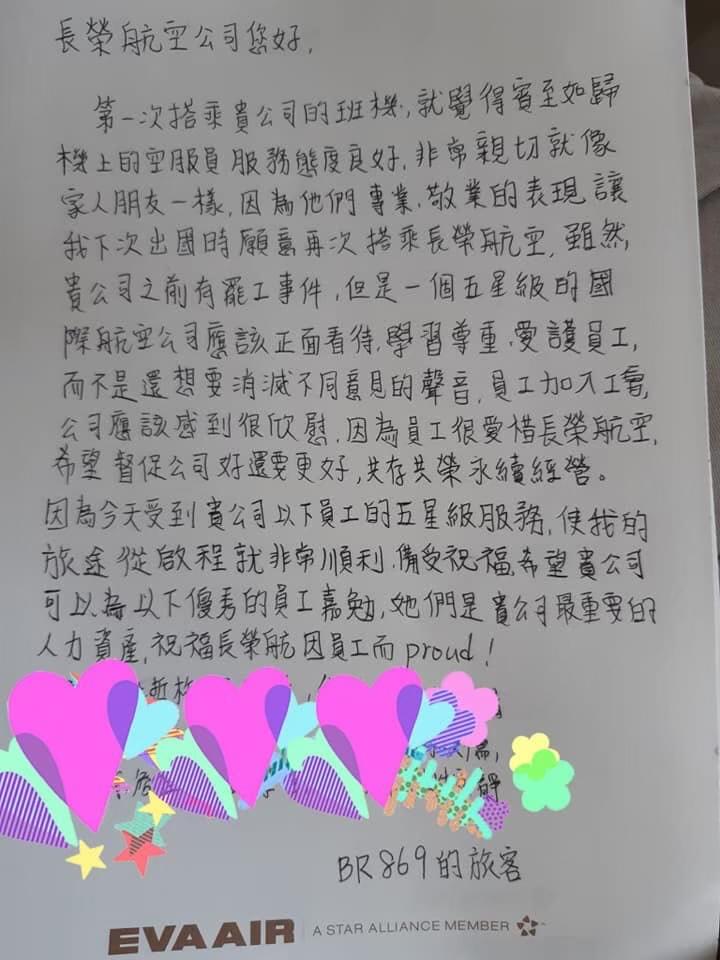 長榮航空公司您好,
第一次搭乘貴公司的班機,就覺得賓至如歸
機上的空服員服務態度良好,非常親切就像
家人朋友一樣,因為他們專業,敬業的表現讓
我下次出國時願意再次搭乘長榮航空,雖然,
貴公司之前有罷工事件,但是一個五星級的國
際航空公司應該正面看待,學習尊重,愛護員工,
而不是還想要消滅不同意見的聲音,員工加入工會,
公司應該感到很欣慰,因為員工很愛惜長榮航空,
希望督促公司好還要更好,共存共榮永續經營。
因為今天受到貴公司以下員工的五星級服務,使我的
旅途從啟程就非常順利,備受祝福,希望貴公司
可以為以下優秀的員工嘉勉,她們是貴公司最重要的
人力資產,祝福長榮航因員工而proud!
BR869的旅客
EVA AIR | A STAR ALLIANCE MEMBER